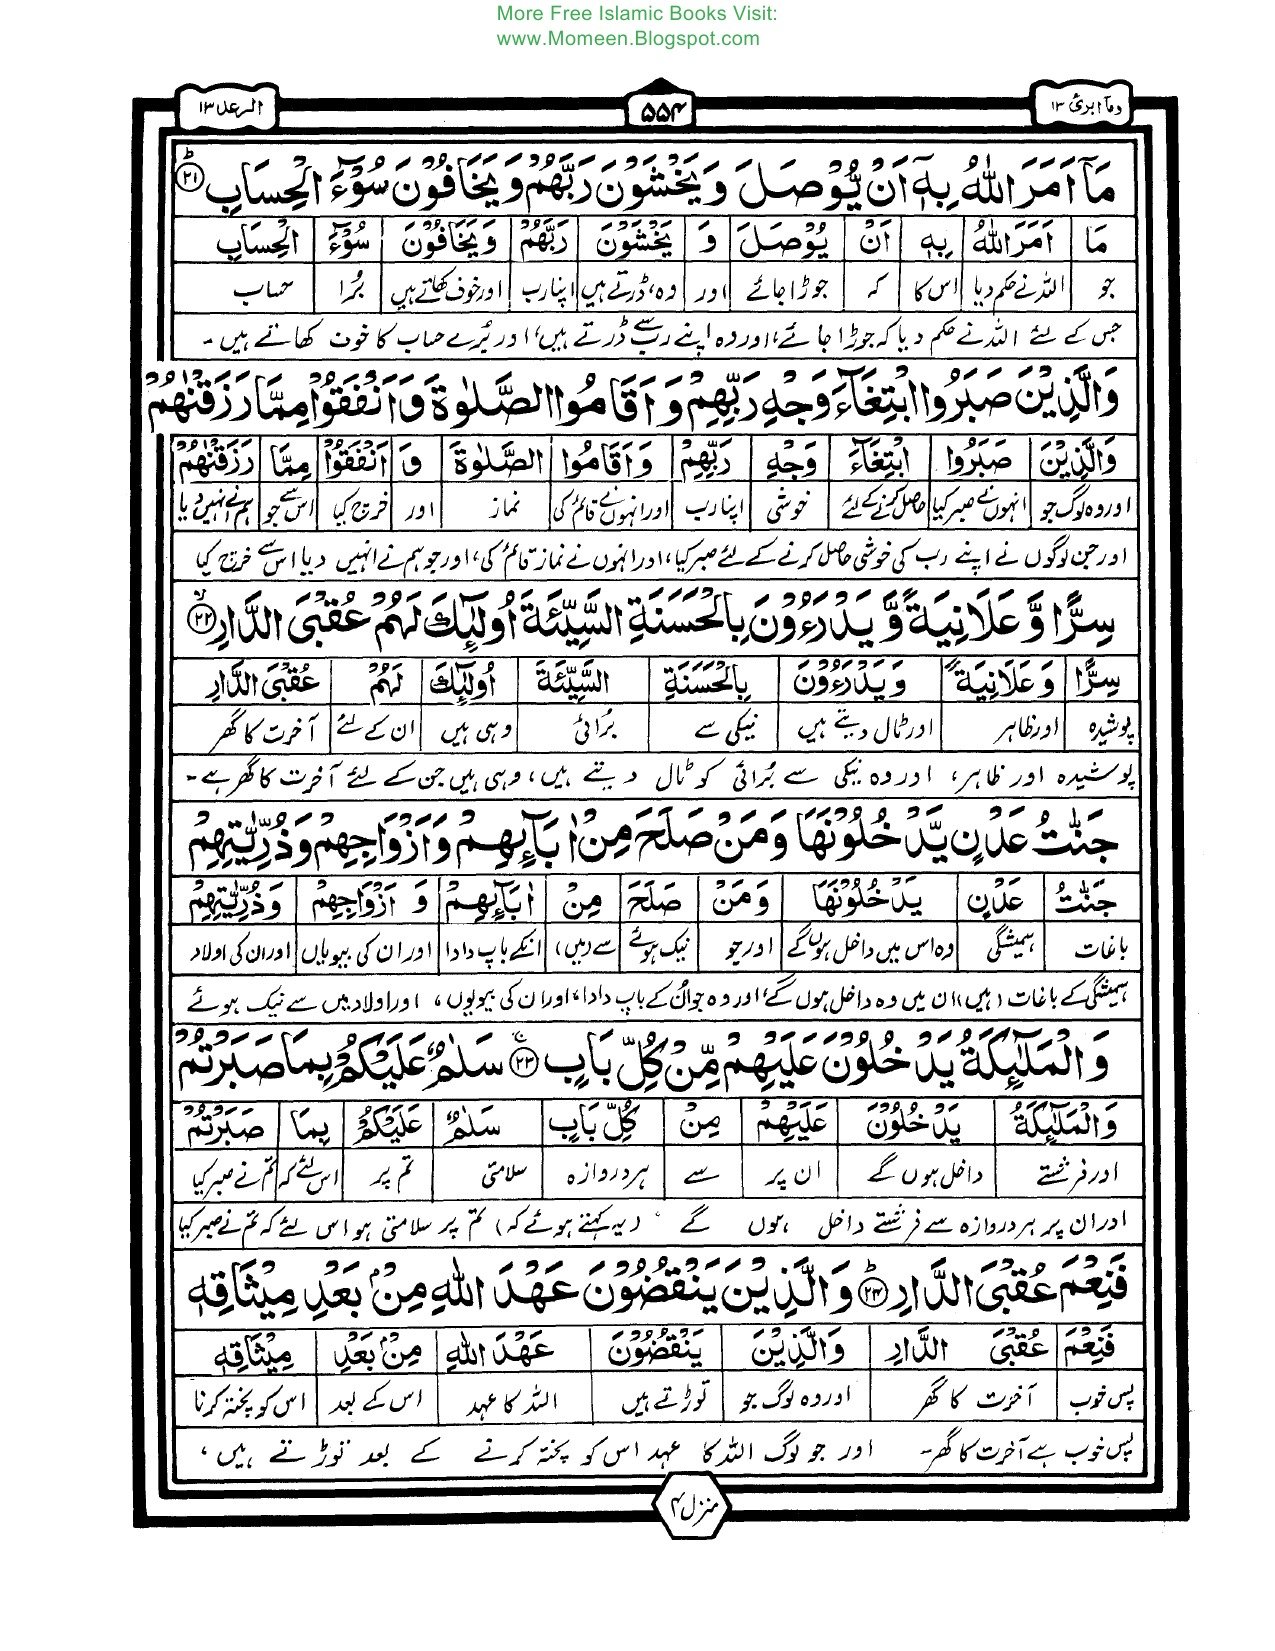 More Free Islamic Books Visit:
www.Momeen.Blogspot.com
ومآ ابرئ ۱۳
۵۵۴
الرعد ۱۳
مَآ اَمَرَ اللّٰهُ بِهٖٓ اَنْ يُّوْصَلَ وَيَخْشَوْنَ رَبَّهُمْ وَيَخَافُوْنَ سُوْٓءَ الْحِسَابِ ۲۱
مَا اَمَرَ اللّٰهُ بِهٖٓ اَنْ يُّوْصَلَ وَ يَخْشَوْنَ رَبَّهُمْ وَيَخَافُوْنَ سُوْٓءَ الْحِسَابِ
جو اللہ نے حکم دیا اس کا کہ جوڑا جائے اور وہ ڈرتے ہیں اپنا رب اور خوف کھاتے ہیں بُرا حساب
جس کے لئے اللہ نے حکم دیا کہ جوڑا جائے، اور وہ اپنے رب سے ڈرتے ہیں، اور بُرے حساب کا خوف کھاتے ہیں۔
وَالَّذِيْنَ صَبَرُوا ابْتِغَآءَ وَجْهِ رَبِّهِمْ وَاَقَامُوا الصَّلٰوةَ وَاَنْفَقُوْا مِمَّا رَزَقْنٰهُمْ
وَالَّذِيْنَ صَبَرُوا ابْتِغَآءَ وَجْهِ رَبِّهِمْ وَاَقَامُوا الصَّلٰوةَ وَ اَنْفَقُوْا مِمَّا رَزَقْنٰهُمْ
اور وہ لوگ جو انہوں نے صبر کیا حاصل کرنے کے لئے خوشی اپنا رب اور انہوں نے قائم کی نماز اور خرچ کیا اس سے جو ہم نے انہیں دیا
اور جن لوگوں نے اپنے رب کی خوشی حاصل کرنے کے لئے صبر کیا، اور انہوں نے نماز قائم کی، اور جو ہم نے انہیں دیا اس سے خرچ کیا
سِرًّا وَّعَلَانِيَةً وَّيَدْرَءُوْنَ بِالْحَسَنَةِ السَّيِّئَةَ اُولٰٓئِكَ لَهُمْ عُقْبَى الدَّارِ ۲۲
سِرًّا وَّعَلَانِيَةً وَّيَدْرَءُوْنَ بِالْحَسَنَةِ السَّيِّئَةَ اُولٰٓئِكَ لَهُمْ عُقْبَى الدَّارِ
پوشیدہ اور ظاہر اور ٹال دیتے ہیں نیکی سے بُرائی وہی ہیں ان کے لئے آخرت کا گھر
پوشیدہ اور ظاہر، اور وہ نیکی سے بُرائی کو ٹال دیتے ہیں، وہی ہیں جن کے لئے آخرت کا گھر ہے۔
جَنّٰتُ عَدْنٍ يَّدْخُلُوْنَهَا وَمَنْ صَلَحَ مِنْ اٰبَآئِهِمْ وَاَزْوَاجِهِمْ وَذُرِّيّٰتِهِمْ
جَنّٰتُ عَدْنٍ يَدْخُلُوْنَهَا وَمَنْ صَلَحَ مِنْ اٰبَآئِهِمْ وَ اَزْوَاجِهِمْ وَذُرِّيّٰتِهِمْ
باغات ہمیشگی وہ اس میں داخل ہوں گے اور جو نیک ہوئے سے (میں) انکے باپ دادا اور ان کی بیویاں اور ان کی اولاد
ہمیشگی کے باغات (ہیں) ان میں وہ داخل ہوں گے، اور وہ جو ان کے باپ دادا، اور ان کی بیویوں، اور اولاد میں سے نیک ہوئے
وَالْمَلٰٓئِكَةُ يَدْخُلُوْنَ عَلَيْهِمْ مِّنْ كُلِّ بَابٍ ۲۳ سَلٰمٌ عَلَيْكُمْ بِمَا صَبَرْتُمْ
وَالْمَلٰٓئِكَةُ يَدْخُلُوْنَ عَلَيْهِمْ مِنْ كُلِّ بَابٍ سَلٰمٌ عَلَيْكُمْ بِمَا صَبَرْتُمْ
اور فرشتے داخل ہوں گے ان پر سے ہر دروازہ سلامتی تم پر اس لئے کہ تم نے صبر کیا
اور ان پر ہر دروازہ سے فرشتے داخل ہوں گے (یہ کہتے ہوئے کہ) تم پر سلامتی ہو اس لئے کہ تم نے صبر کیا
فَنِعْمَ عُقْبَى الدَّارِ ۲۴ وَالَّذِيْنَ يَنْقُضُوْنَ عَهْدَ اللّٰهِ مِنْۢ بَعْدِ مِيْثَاقِهٖ
فَنِعْمَ عُقْبَى الدَّارِ وَالَّذِيْنَ يَنْقُضُوْنَ عَهْدَ اللّٰهِ مِنْۢ بَعْدِ مِيْثَاقِهٖ
پس خوب آخرت کا گھر اور وہ لوگ جو توڑتے ہیں اللہ کا عہد اس کے بعد اس کو پختہ کرنا
پس خوب ہے آخرت کا گھر۔ اور جو لوگ اللہ کا عہد اس کو پختہ کرنے کے بعد توڑتے ہیں،
منزل ۳